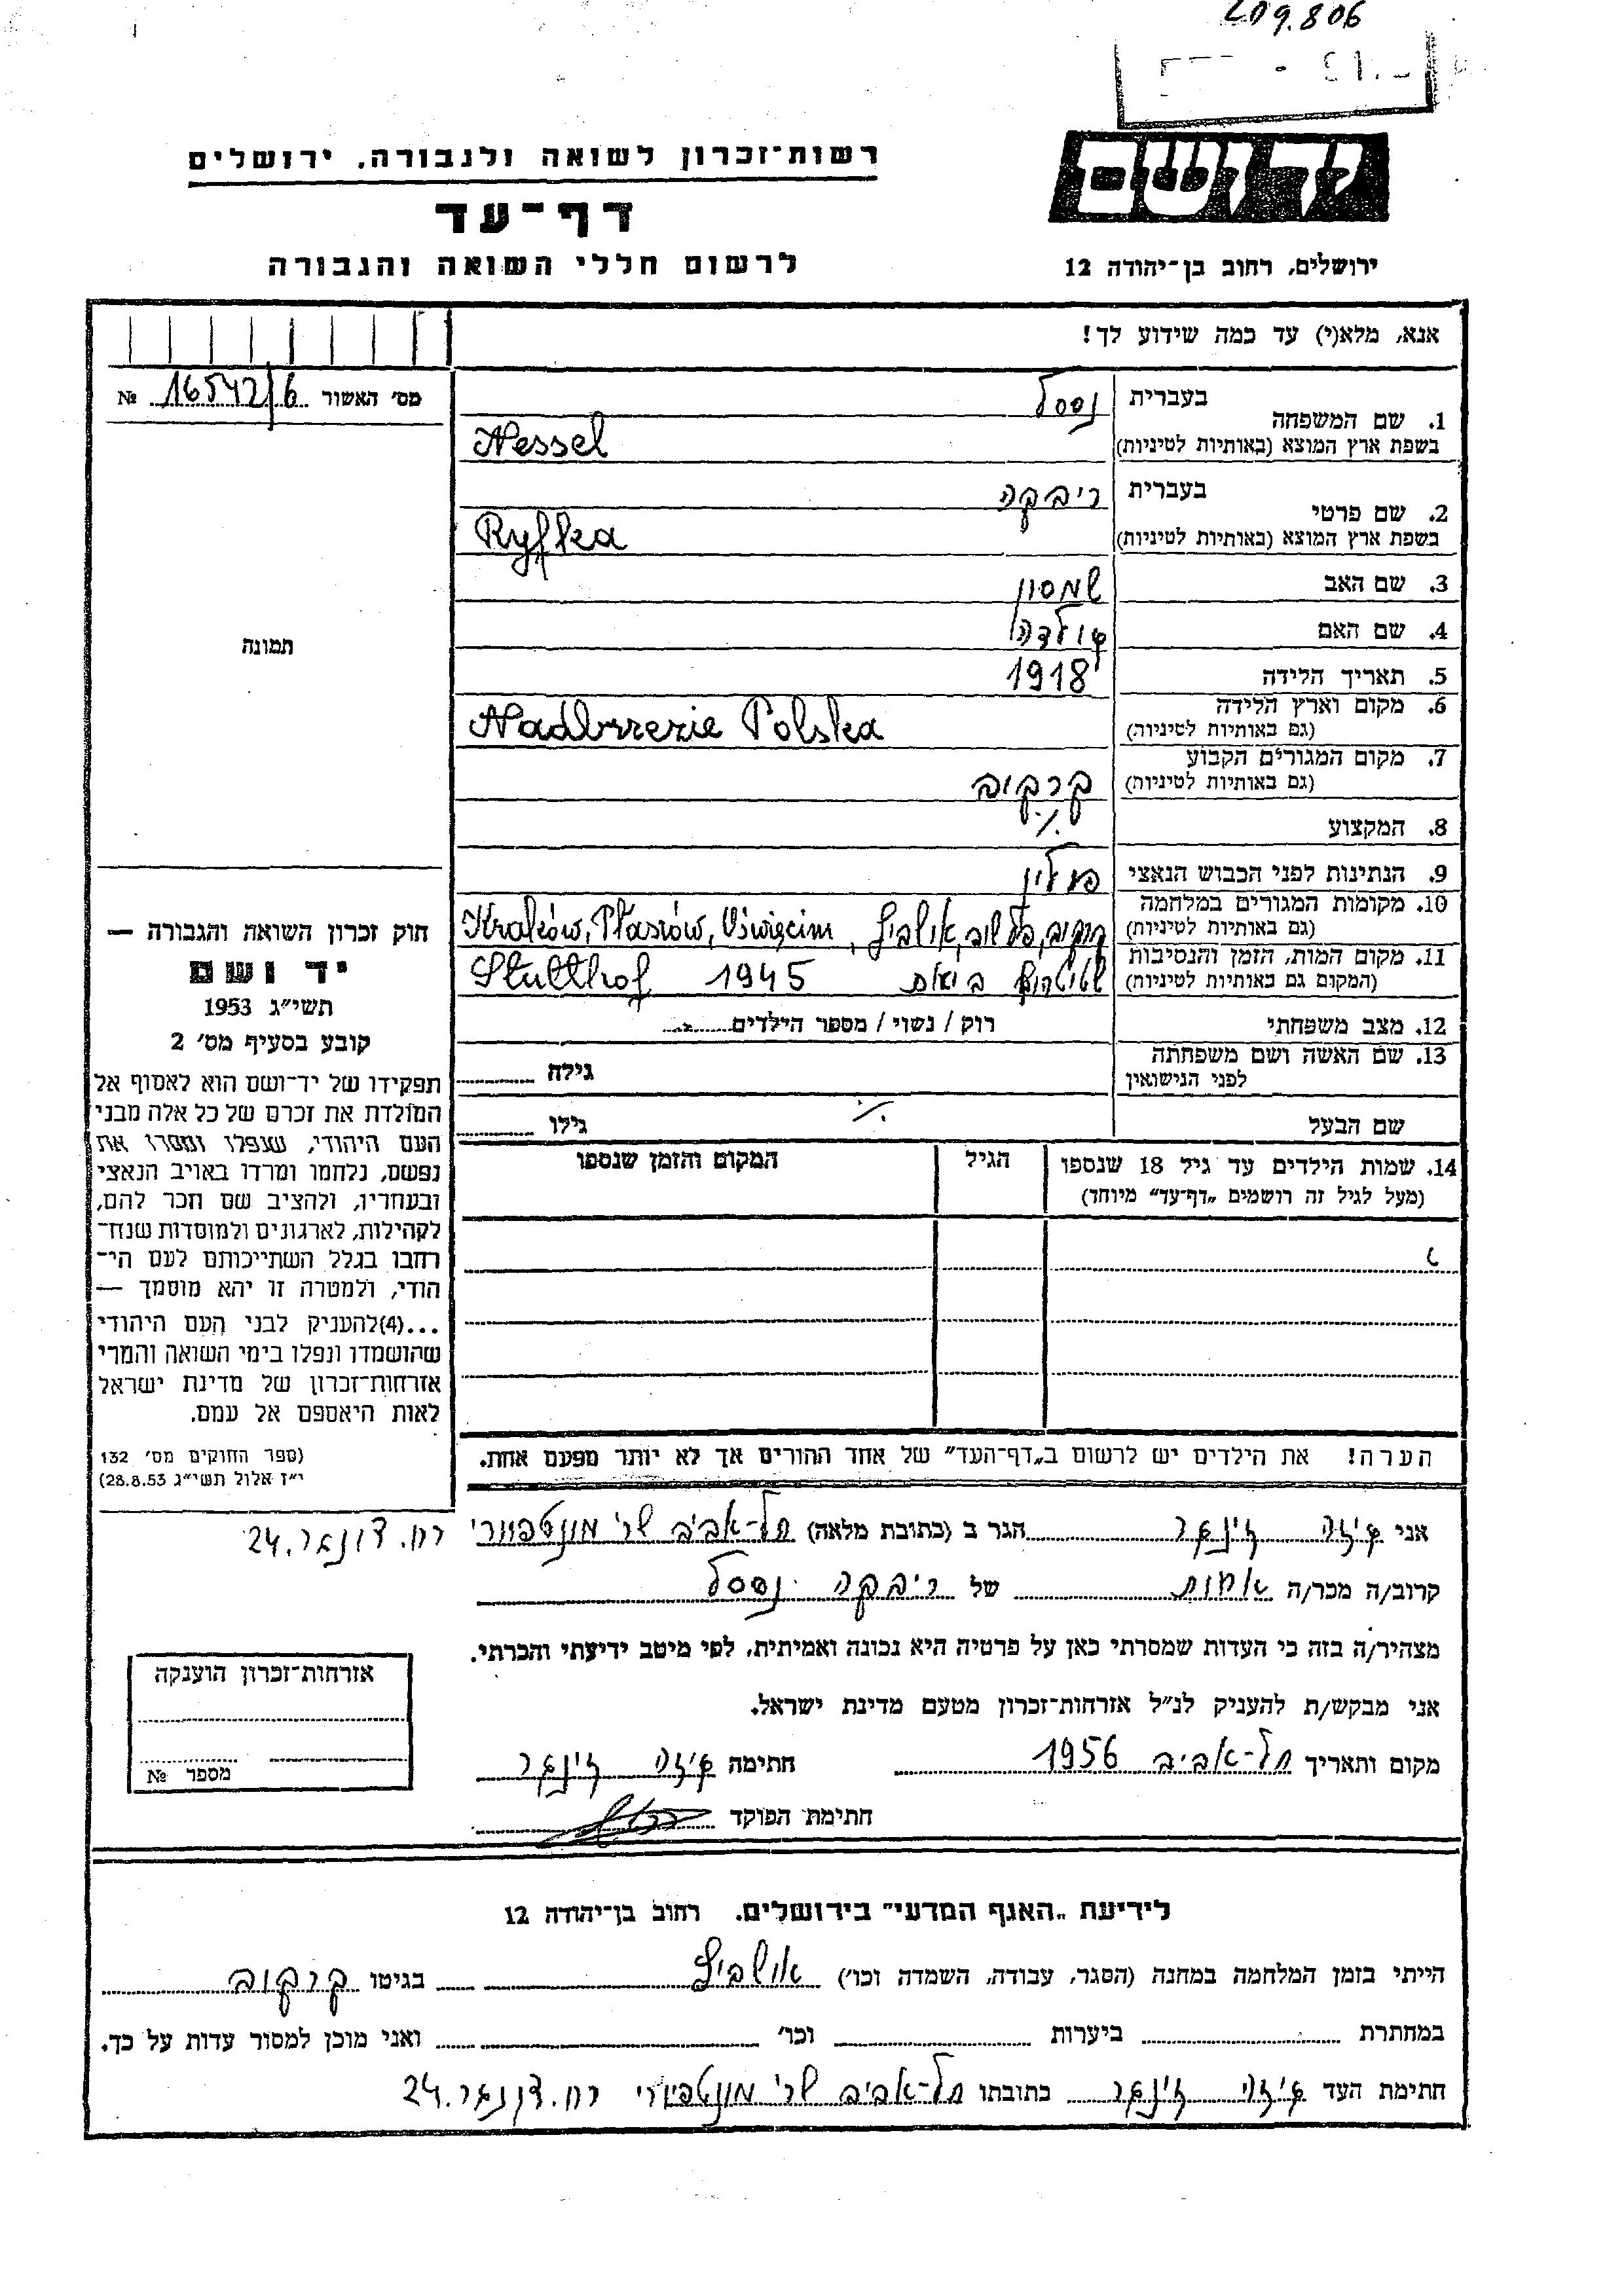 209.806
רשות־זכרון לשואה ולגבורה, ירושלים
יד ושם
דף־עד
לרשום חללי השואה והגבורה
ירושלים, רחוב בן־יהודה 12
אנא, מלא(י) עד כמה שידוע לך!
מס׳ האשור 16542/6 №
1. שם המשפחה
בעברית נסל
בשפת ארץ המוצא (באותיות לטיניות) Nessel
2. שם פרטי
בעברית ריבקה
בשפת ארץ המוצא (באותיות לטיניות) Ryfka
3. שם האב שמסון
4. שם האם
5. תאריך הלידה 1918
6. מקום וארץ הלידה
(גם באותיות לטיניות) Nadbrzezie Polska
7. מקום המגורים הקבוע
(גם באותיות לטיניות) קרקוב
8. המקצוע ./.
9. הנתינות לפני הכבוש הנאצי פולין
10. מקומות המגורים במלחמה
(גם באותיות לטיניות) קרקוב, פלשוב, אושביץ, Kraków, Płaszów, Oświęcim
11. מקום המות, הזמן והנסיבות
(המקום גם באותיות לטיניות) שטוטהוף Stutthof 1945
12. מצב משפחתי רוק / נשוי / מספר הילדים
13. שם האשה ושם משפחתה
לפני הנישואין גילה
שם הבעל ./. גילו
14. שמות הילדים עד גיל 18 שנספו
(מעל לגיל זה רושמים „דף־עד״ מיוחד)
הגיל
המקום והזמן שנספו
הערה! את הילדים יש לרשום ב„דף־העד״ של אחד ההורים אך לא יותר מפעם אחת.
תמונה
חוק זכרון השואה והגבורה —
יד ושם
תשי״ג 1953
קובע בסעיף מס׳ 2
תפקידו של יד־ושם הוא לאסוף אל
המולדת את זכרם של כל אלה מבני
העם היהודי, שנפלו ומסרו את
נפשם, נלחמו ומרדו באויב הנאצי
ובעוזריו, ולהציב שם וזכר להם,
לקהילות, לארגונים ולמוסדות שנח־
רבו בגלל השתייכותם לעם הי־
הודי, ולמטרה זו יהא מוסמך —
...(4)להעניק לבני העם היהודי
שהושמדו ונפלו בימי השואה והמרי
אזרחות־זכרון של מדינת ישראל
לאות היאספם אל עמם.
(ספר החוקים מס׳ 132
י״ז אלול תשי״ג 28.8.53)
אני גיזה זינגר הגר ב (כתובת מלאה) תל-אביב שכ׳ מונטפיורי
רח. 24
קרוב/ה מכר/ה אחות של ריבקה נסל
מצהיר/ה בזה כי העדות שמסרתי כאן על פרטיה היא נכונה ואמיתית, לפי מיטב ידיעתי והכרתי.
אני מבקש/ת להעניק לנ״ל אזרחות־זכרון מטעם מדינת ישראל.
מקום ותאריך תל-אביב 1956 חתימה גיזה זינגר
חתימת הפוקד
אזרחות־זכרון הוענקה
מספר №
לידיעת „האגף המדעי״ בירושלים, רחוב בן־יהודה 12
הייתי בזמן המלחמה במחנה (הסגר, עבודה, השמדה וכו׳) אושביץ בגיטו קרקוב
במחתרת ביערות וכו׳ ואני מוכן למסור עדות על כך.
חתימת העד גיזה זינגר כתובתו תל-אביב שכ׳ מונטפיורי רח. 24